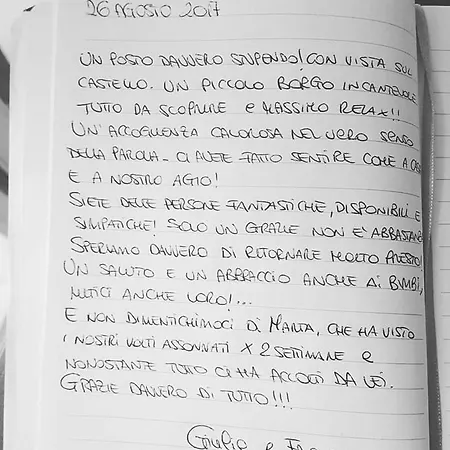 26 AGOSTO 2017
UN POSTO DAVVERO STUPENDO! CON VISTA SUL
CASTELLO. UN PICCOLO BORGO INCANTEVOLE
TUTTO DA SCOPRIRE E MASSIMO RELAX!!
UN'ACCOGLIENZA CALOROSA NEL VERO SENSO
DELLA PAROLA - CI AVETE FATTO SENTIRE COME A CASA
E A NOSTRO AGIO!
SIETE DELLE PERSONE FANTASTICHE, DISPONIBILI E
SIMPATICHE! SOLO UN GRAZIE NON È ABBASTANZA
SPERIAMO DAVVERO DI RITORNARE MOLTO PRESTO!
UN SALUTO E UN ABBRACCIO ANCHE AI BIMBI,
MITICI ANCHE LORO!...
E NON DIMENTICHIAMOCI DI MARTA, CHE HA VISTO
I NOSTRI VOLTI ASSONNATI X 2 SETTIMANE E
NONOSTANTE TUTTO CI HA ACCOLTI DA LEI.
GRAZIE DAVVERO DI TUTTO!!!